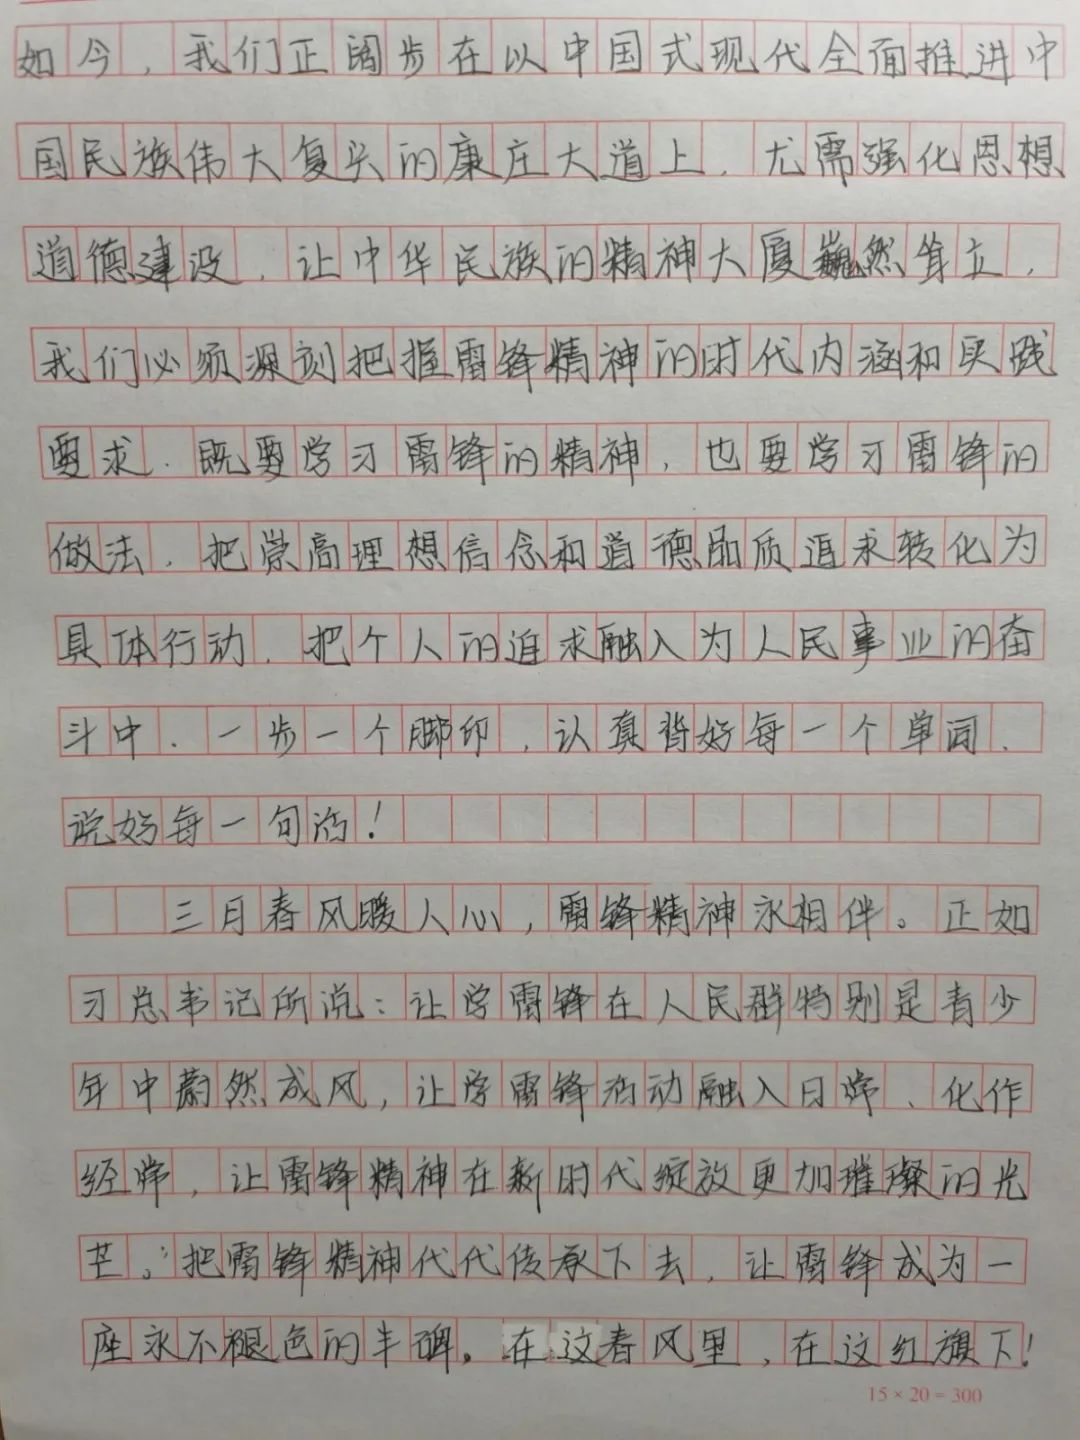 如今，我们正阔步在以中国式现代全面推进中
国民族伟大复兴的康庄大道上，尤需强化思想
道德建设，让中华民族的精神大厦巍然耸立，
我们必须深刻把握雷锋精神的时代内涵和实践
要求，既要学习雷锋的精神，也要学习雷锋的
做法，把崇高理想信念和道德品质追求转化为
具体行动，把个人的追求融入为人民事业的奋
斗中，一步一个脚印，认真背好每一个单词、
说好每一句话！
三月春风暖人心，雷锋精神永相伴。正如
习总书记所说：让学雷锋在人民群特别是青少
年中蔚然成风，让学雷锋活动融入日常、化作
经常，让雷锋精神在新时代绽放更加璀璨的光
芒。”把雷锋精神代代传承下去，让雷锋成为一
座永不褪色的丰碑。在这春风里，在这红旗下！
15×20=300